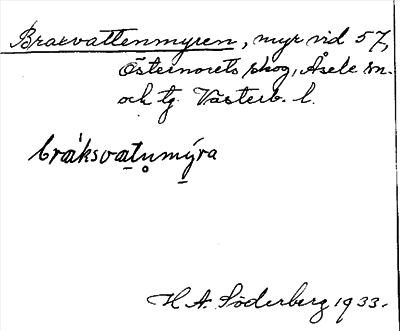 Braxvattenmyren, myr vid 57,
Östernorets skog, Åsele sn.
och tg. Västerb. l.
bráksvatumýra
H A. Söderberg 1933.